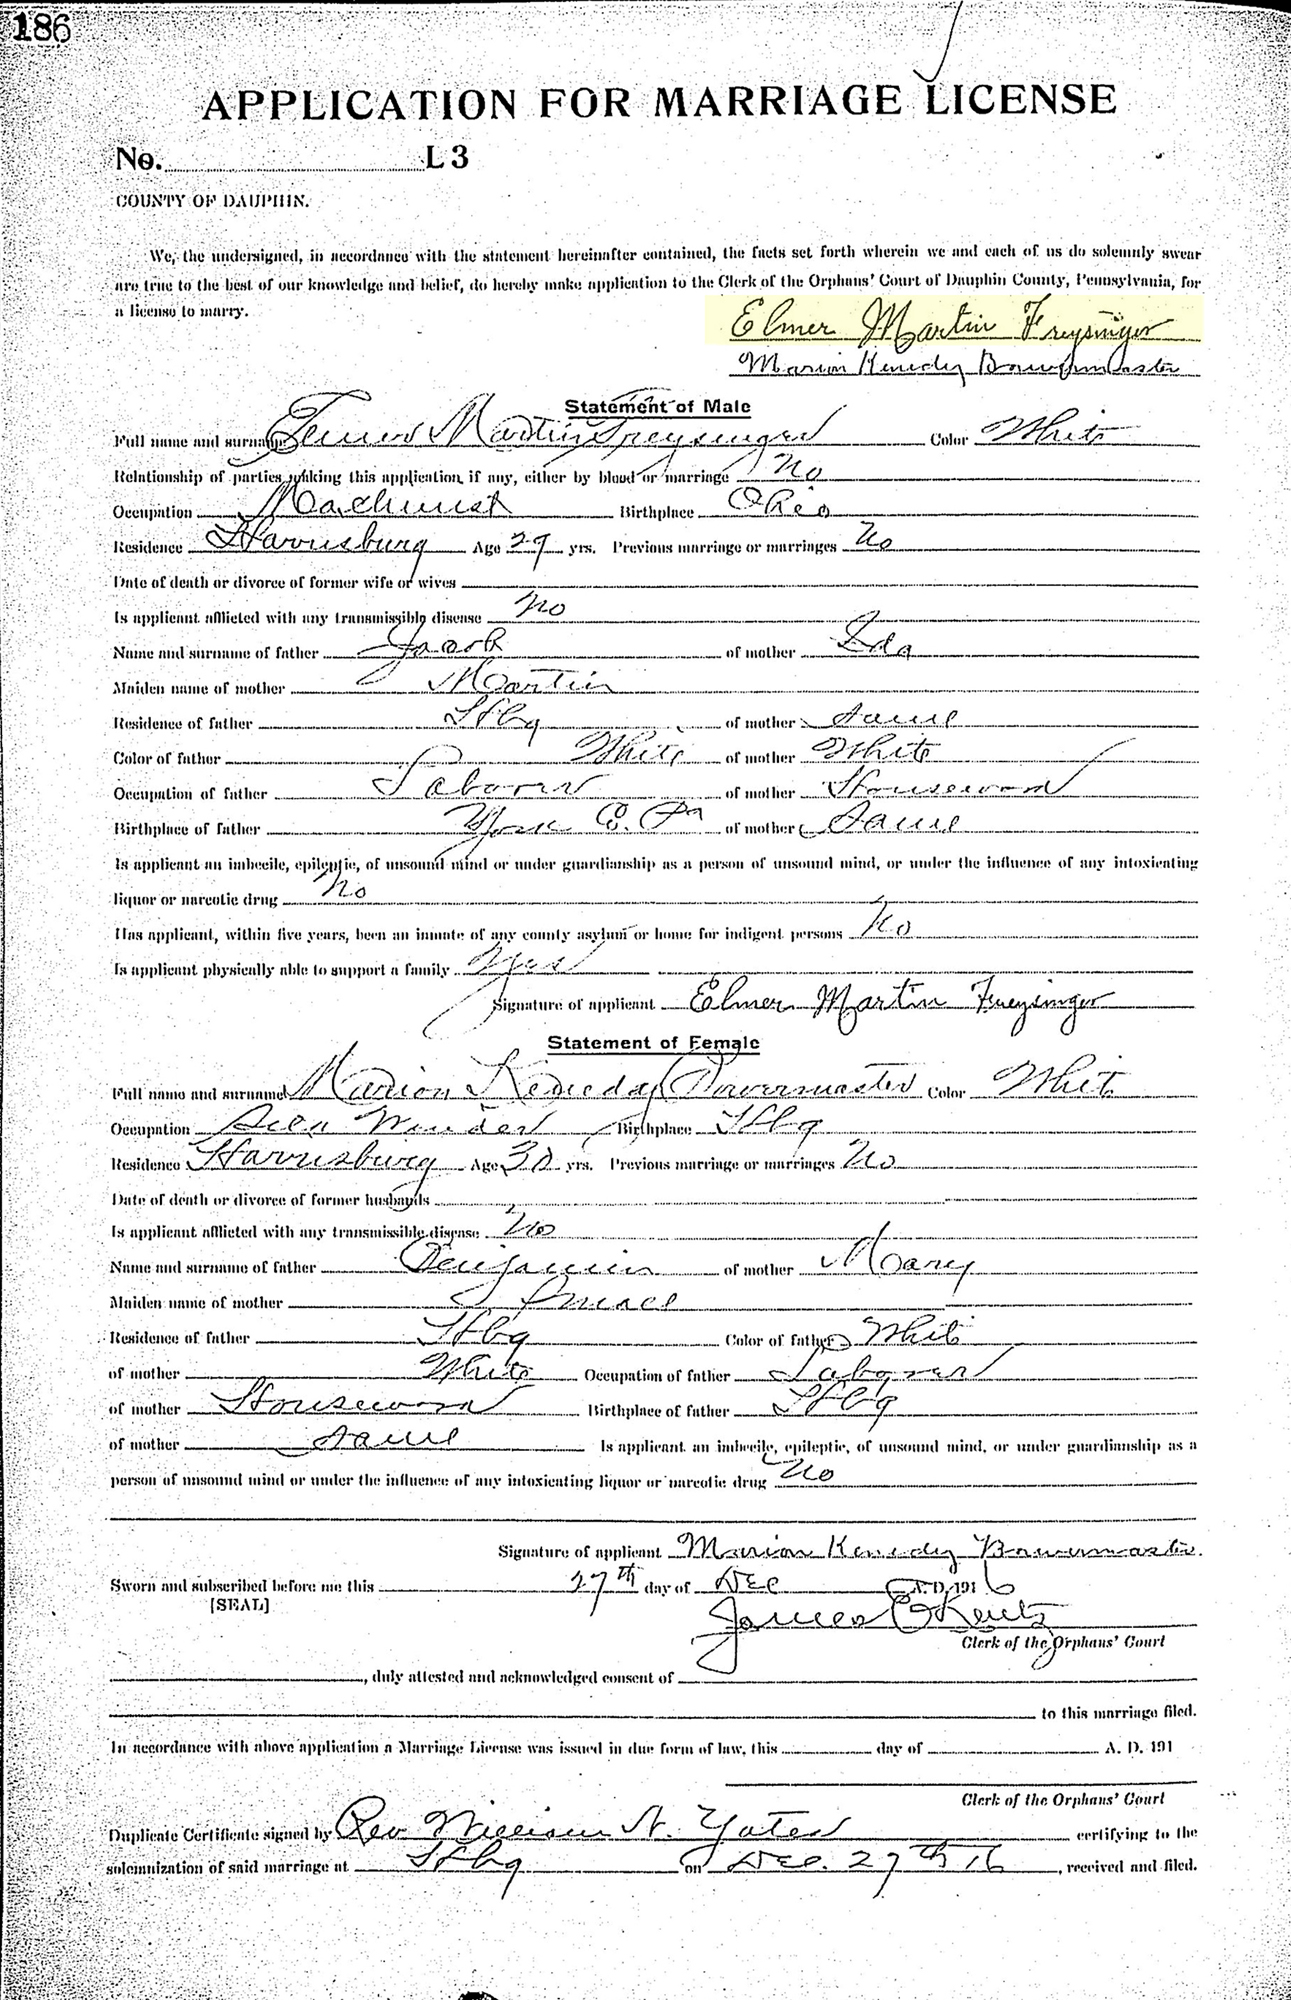 186
APPLICATION FOR MARRIAGE LICENSE
No. L 3
COUNTY OF DAUPHIN.
We, the undersigned, in accordance with the statement hereinafter contained, the facts set forth wherein we and each of us do solemnly swear
are true to the best of our knowledge and belief, do hereby make application to the Clerk of the Orphans' Court of Dauphin County, Pennsylvania, for
a license to marry.
Elmer Martin Freysinger
Marion Kenedy Bowermaster
Statement of Male
Full name and surname Elmer Martin Freysinger Color White
Relationship of parties making this application, if any, either by blood or marriage No
Occupation Machinist Birthplace Ohio
Residence Harrisburg Age 29 yrs. Previous marriage or marriages No
Date of death or divorce of former wife or wives
Is applicant afflicted with any transmissible disease No
Name and surname of father Jacob of mother Ida
Maiden name of mother Martin
Residence of father Hbg of mother Same
Color of father White of mother White
Occupation of father Laborer of mother Housework
Birthplace of father York Co. Pa of mother Same
Is applicant an imbecile, epileptic, of unsound mind or under guardianship as a person of unsound mind, or under the influence of any intoxicating
liquor or narcotic drug No
Has applicant, within five years, been an inmate of any county asylum or home for indigent persons No
Is applicant physically able to support a family Yes
Signature of applicant Elmer Martin Freysinger
Statement of Female
Full name and surname Marion Kenedy Bowermaster Color White
Occupation Winder Birthplace Hbg
Residence Harrisburg Age 30 yrs. Previous marriage or marriages No
Date of death or divorce of former husbands
Is applicant afflicted with any transmissible disease No
Name and surname of father Benjamin of mother Mary
Maiden name of mother
Residence of father Hbg Color of father White
of mother White Occupation of father Laborer
of mother Housework Birthplace of father Hbg
of mother Same Is applicant an imbecile, epileptic, of unsound mind, or under guardianship as a
person of unsound mind or under the influence of any intoxicating liquor or narcotic drug No
Signature of applicant Marion Kenedy Bowermaster
Sworn and subscribed before me this 27th day of Dec A. D. 1916
[SEAL] James E Lentz
Clerk of the Orphans' Court
, duly attested and acknowledged consent of
to this marriage filed.
In accordance with above application a Marriage License was issued in due form of law, this day of A. D. 191
Clerk of the Orphans' Court
Duplicate Certificate signed by Rev William N. Yates certifying to the
solemnization of said marriage at Hbg on Dec. 27th 16, received and filed.